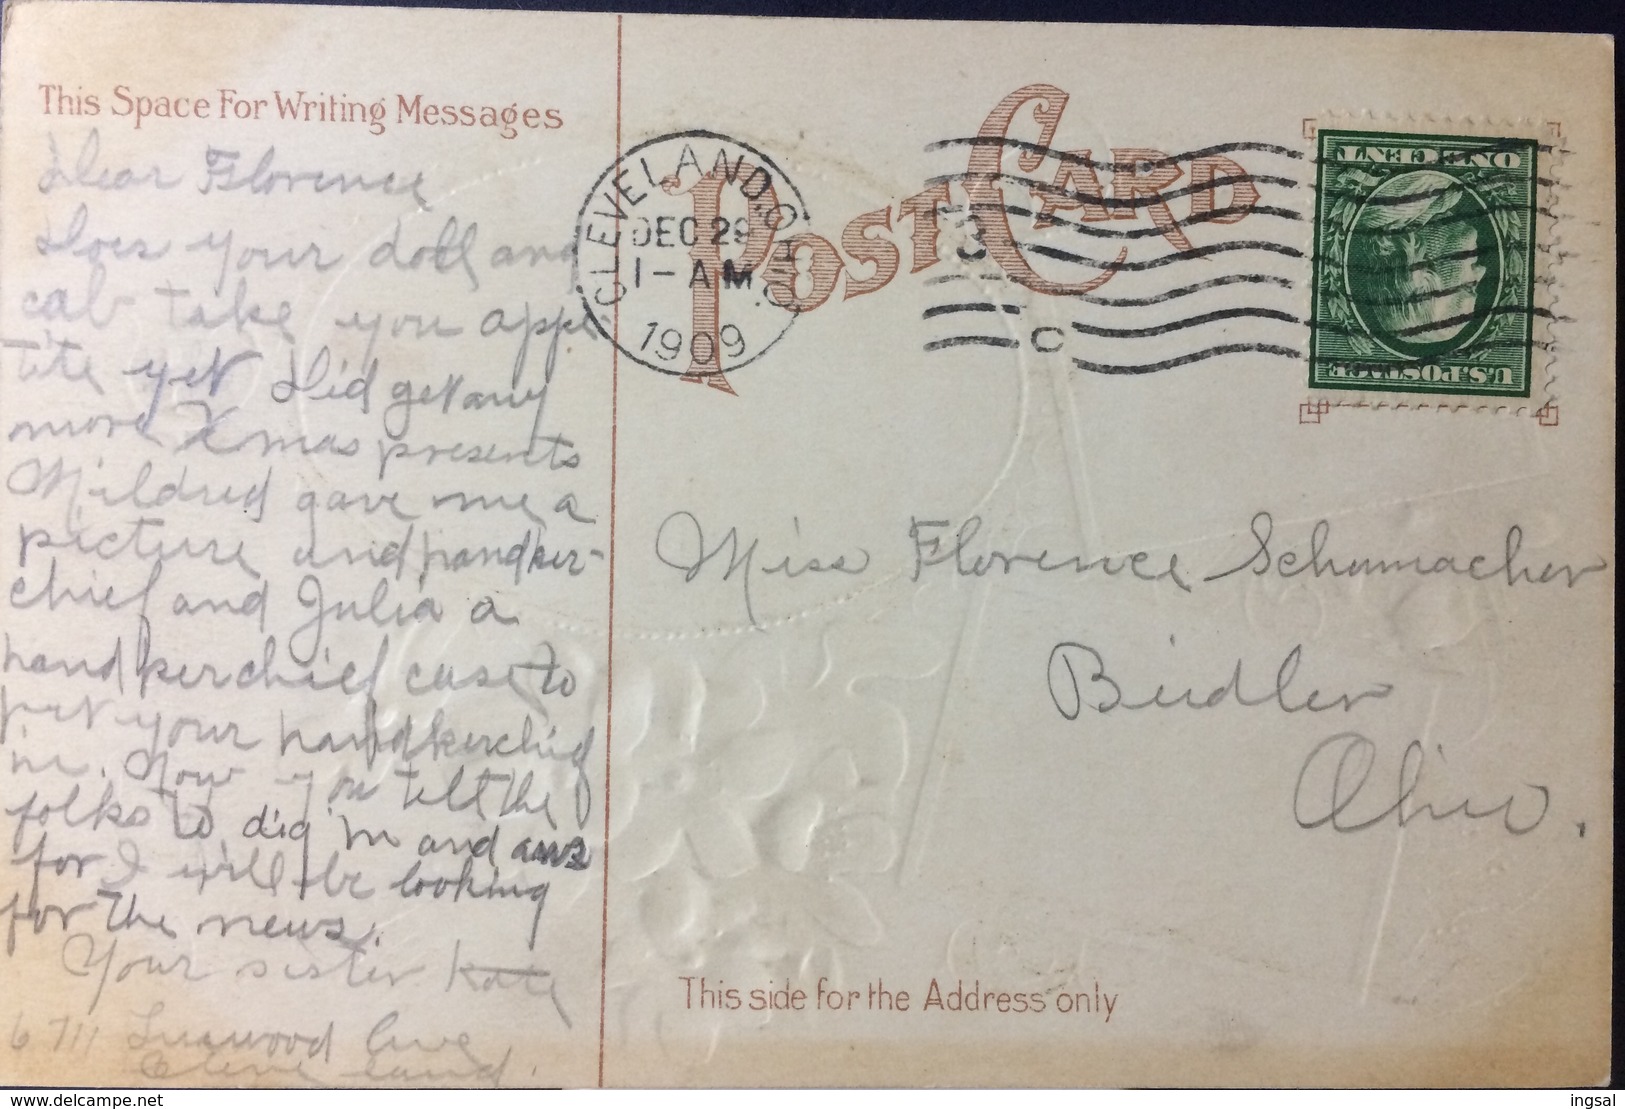 This Space For Writing Messages
Dear Florence
Does your doll and
cab take you appe
tite yet Did get any
more Xmas presents
Mildred gave me a
picture and handker-
chief and Julia a
handkerchief case to
put your handkerchief
in. Now you tell the
folks to dig in and ans
for I will be looking
for the news.
Your sister Kate
6711 Ave
Cleveland.
POST CARD
CLEVELAND, OHIO.
DEC 29
1-AM
1909
3
C
U.S. POSTAGE
ONE CENT
Miss Florence Schumacher
Birdler
Ohio.
This side for the Address only
delcampe.net
ingsal